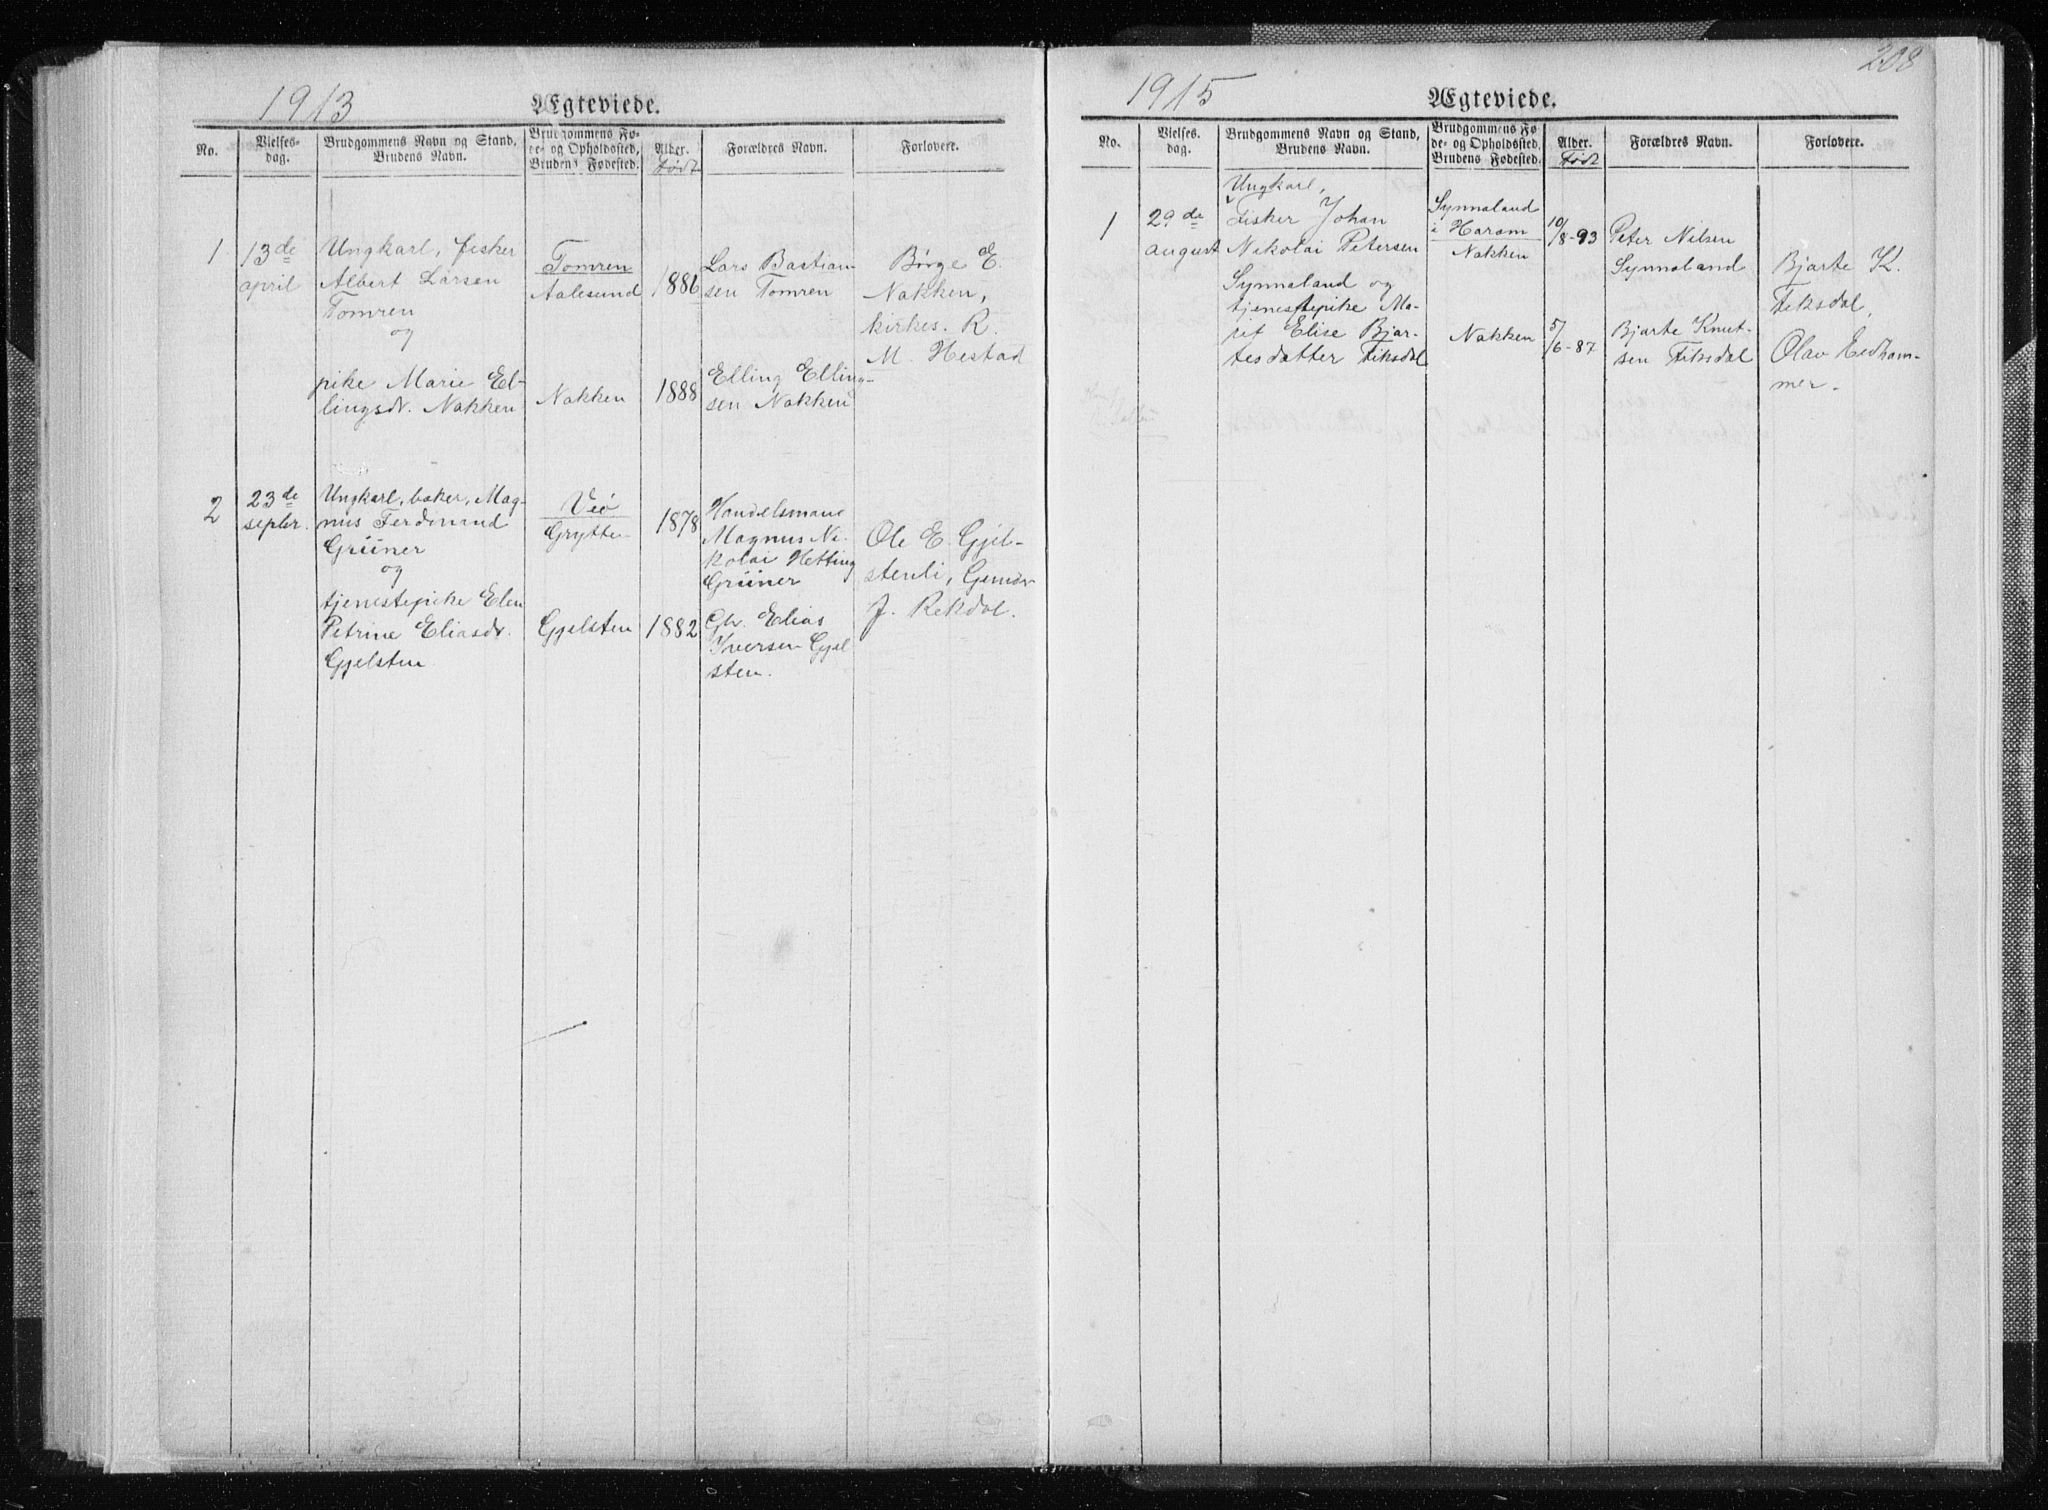 1913 Ægteviede.
No.
Vielses-
dag.
Brudgommens Navn og Stand,
Brudens Navn.
Brudgommens Fø-
de- og Opholdssted,
Brudens Fødested.
Alder.
Født
Forældres Navn.
Forlovere.
1.
13de
april
Ungkarl, fisker
Albert Larsen
Tomren
og
pike Marie El-
lingsdr. Nakken
Tomren
Aalesund
Nakken
1886
1888
Lars Bastian-
sen Tomren
Elling Elling-
sen Nakken
Børge E.
Nakken,
kirkes. R.
M. Hestad
2
23de
septbr.
Ungkarl, baker, Mag-
nus Ferdinand
Grüner
og
tjenestepike Elen
Petrine Eliasdr.
Gjelsten
Veö
Grytten
Gjelsten
1878
1882
Handelsmann
Magnus Ni-
kolai Hetting
Grüner
Gbr. Elias
Iversen Gjel
sten.
Ole E. Gjel-
stenli,
J. Rekdal.
208
1915 Ægteviede.
No.
Vielses-
dag.
Brudgommens Navn og Stand,
Brudens Navn.
Brudgommens Fø-
de- og Opholdssted,
Brudens Fødested.
Alder.
Født
Forældres Navn.
Forlovere.
1
29de
august
Ungkarl,
Fisker Johan
Nikolai Petersen
Synnaland og
tjenestepike Ma-
rit Elise Bjar-
tesdatter Fiksdal
Synnaland
i Haram
Nakken
Nakken
10/8-93
5/6-87
Peter Nilsen
Synnaland
Bjarte Knut-
sen Fiksdal
Bjarte K.
Fiksdal,
Olav Eedham-
mer.